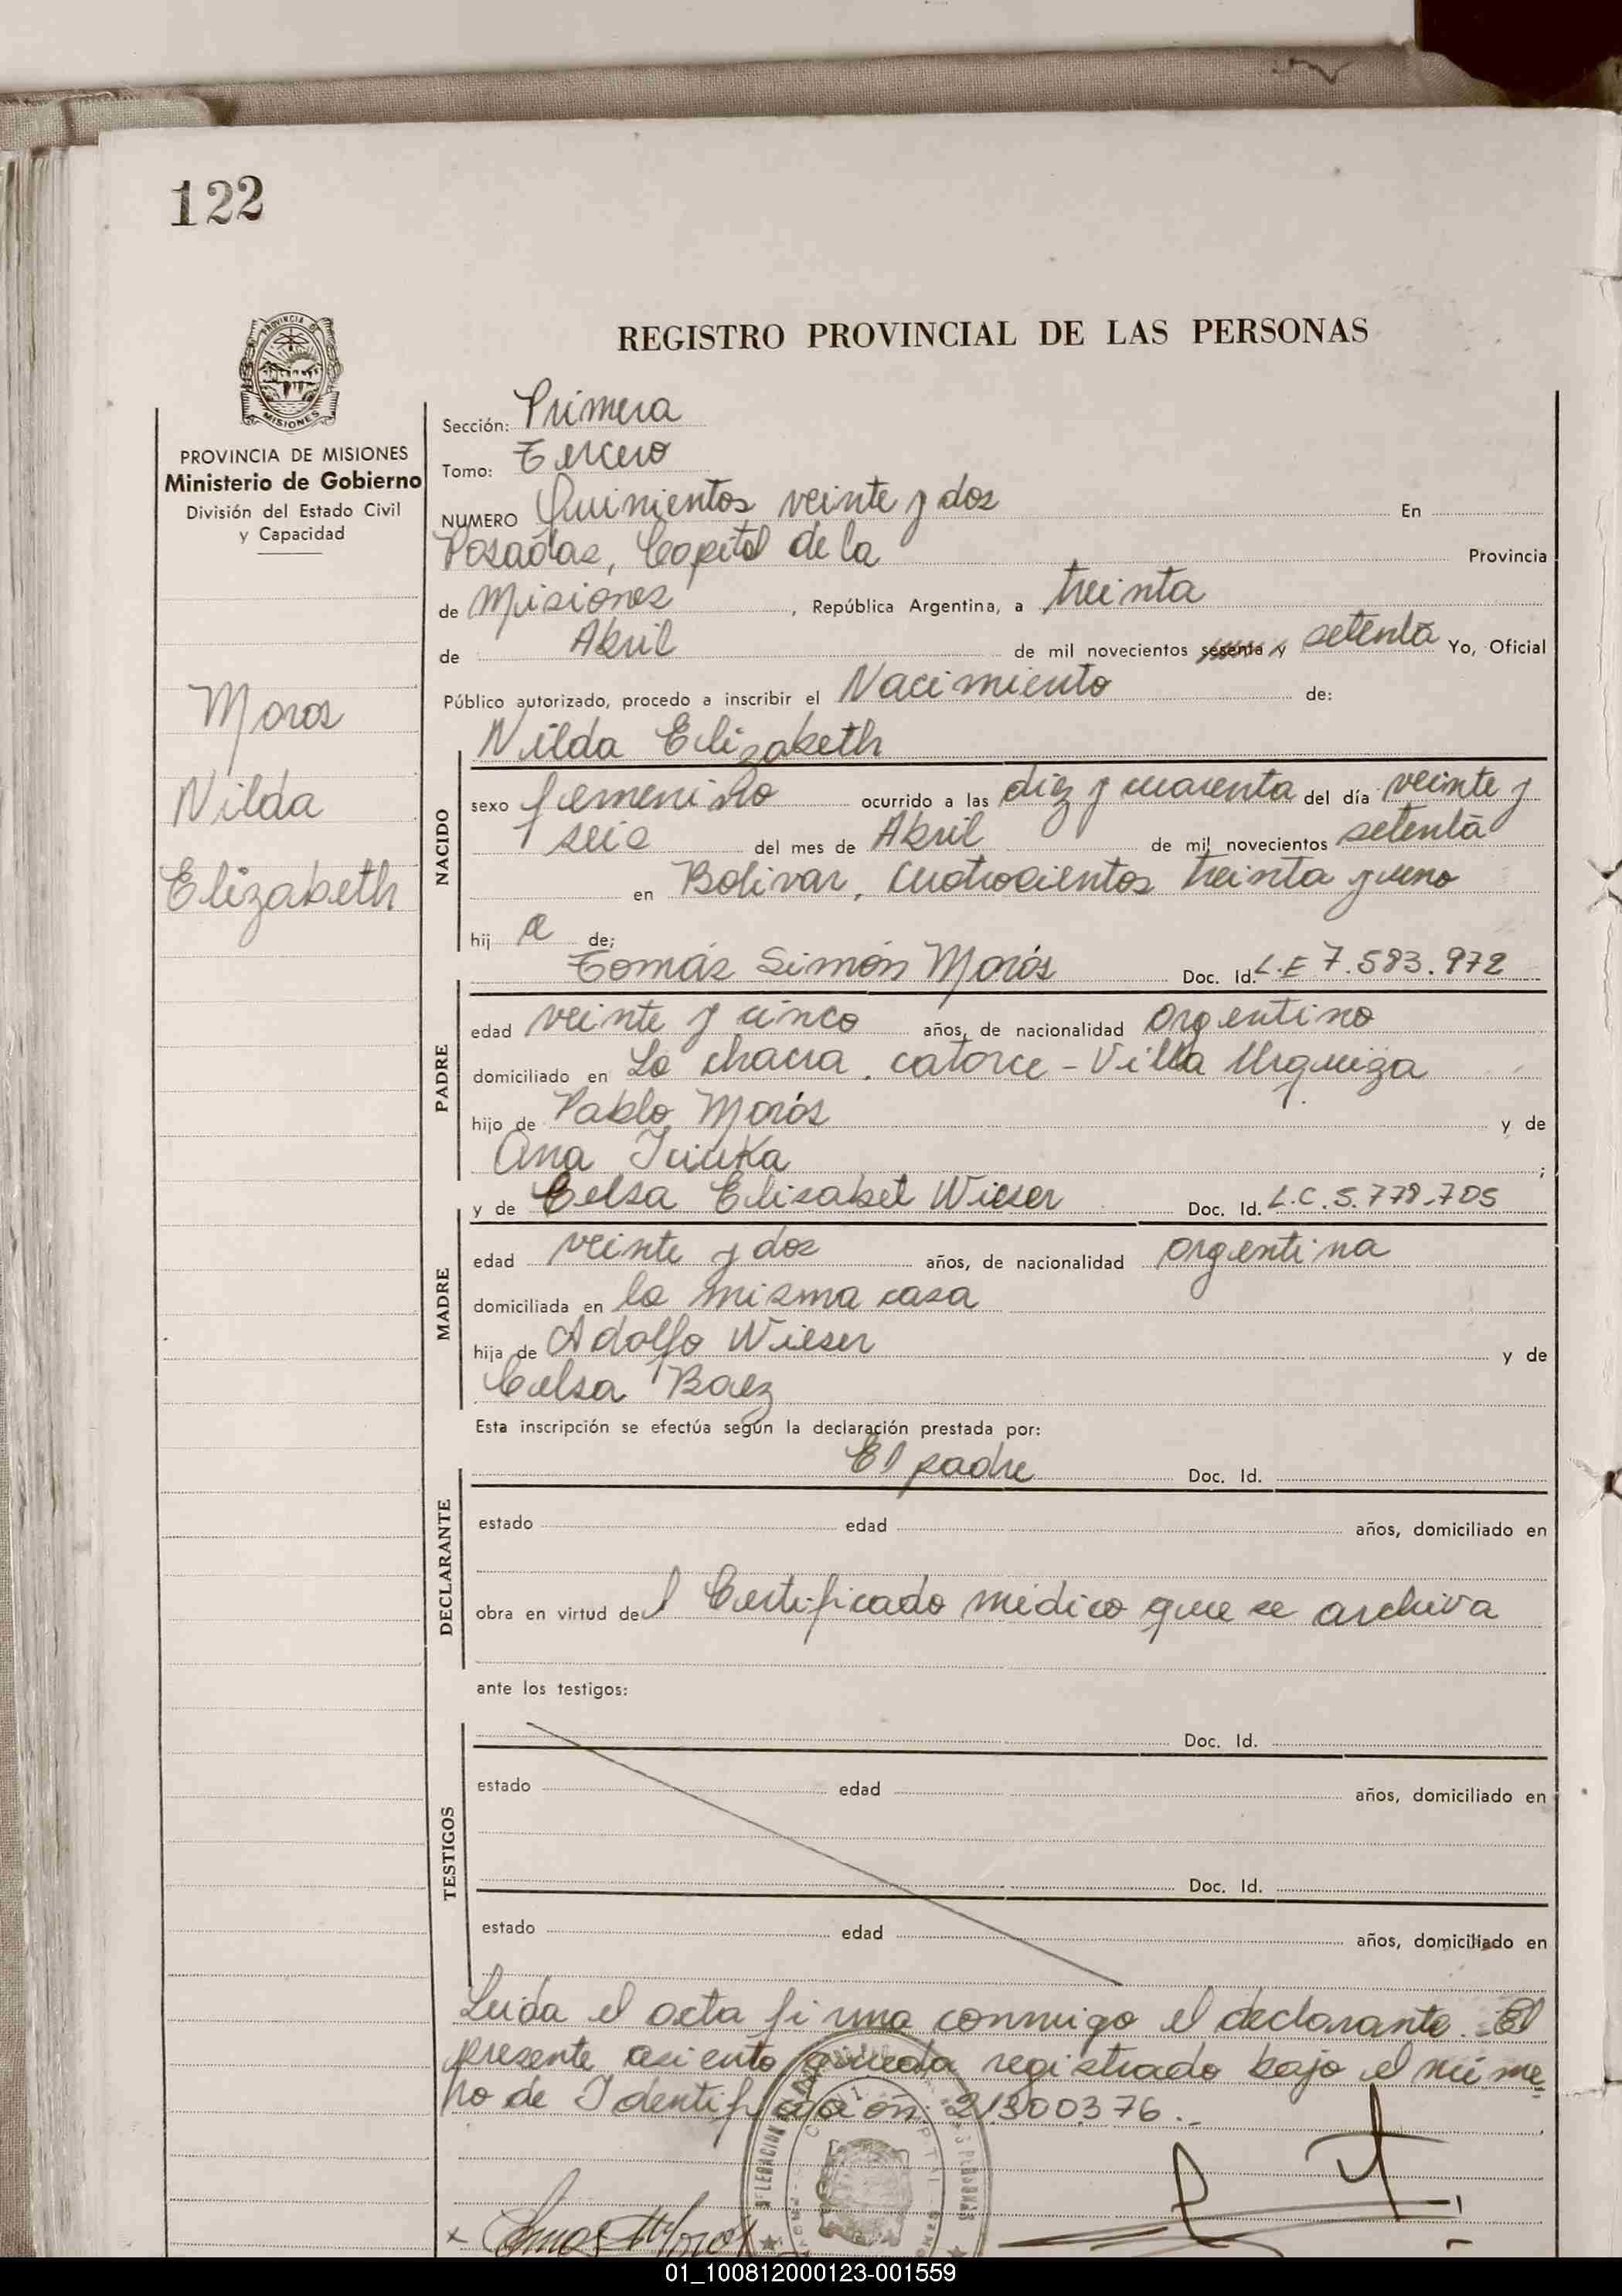 122
PROVINCIA DE
MISIONES
PROVINCIA DE MISIONES
Ministerio de Gobierno
División del Estado Civil
y Capacidad
Moros
Nilda
Elizabeth
REGISTRO PROVINCIAL DE LAS PERSONAS
Sección: Primera
Tomo: Tercero
NUMERO Quinientos veinte y dos En
Posadas, Capital de la Provincia
de Misiones, República Argentina, a treinta
de Abril de mil novecientos sesenta y setenta Yo, Oficial
Público autorizado, procedo a inscribir el Nacimiento de:
Nilda Elizabeth
NACIDO
sexo femenino ocurrido a las diez y cuarenta del día veinte y
seis del mes de Abril de mil novecientos setenta
en Bolivar, cuatrocientos treinta y uno
hij a de;
Tomás Simón Morós Doc. Id. L.E 7.583.972
PADRE
edad veinte y cinco años, de nacionalidad argentino
domiciliado en La chacra catorce - Villa Urquiza
hijo de Pablo Morós y de
Ana ;
y de Celsa Elisabet Wieser Doc. Id. L.C. 5.779.705
MADRE
edad veinte y dos años, de nacionalidad argentina
domiciliada en la misma casa
hija de Adolfo Wieser y de
Celsa Baez
Esta inscripción se efectúa según la declaración prestada por:
El padre Doc. Id.
DECLARANTE
estado edad años, domiciliado en
obra en virtud del Certificado médico que se archiva
ante los testigos:
Doc. Id.
TESTIGOS
estado edad años, domiciliado en
Doc. Id.
estado edad años, domiciliado en
Leida el acta firma conmigo el declarante. El
presente asiento queda registrado bajo el núme
ro de Identificación: 21300376.-
01_100812000123-001559